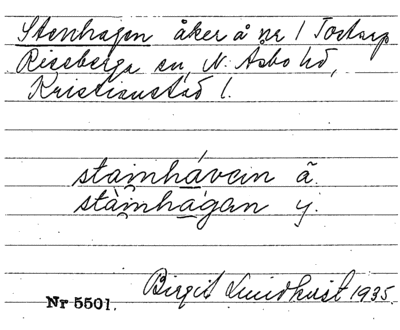 Stenhagen åker å nr 1 Tostarp
Riseberga sn, N. Åsbo hd,
Kristianstad l.
stàinhávein ä.
stàinhágan y.
Birgit Lundkvist 1935.
Nr 5501.